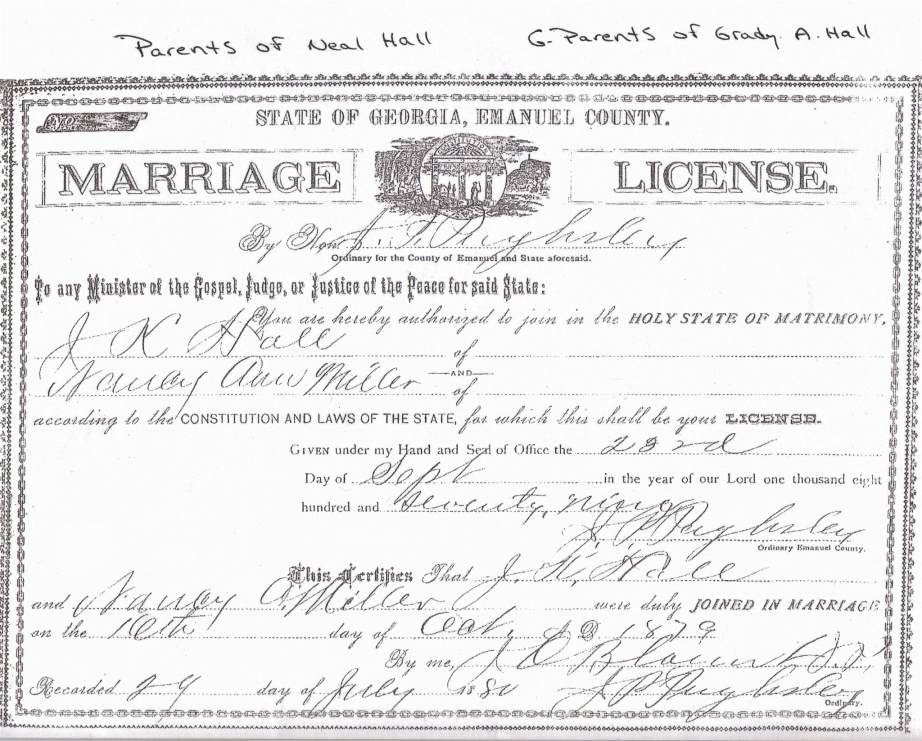 Parents of Neal Hall G-Parents of Grady A. Hall
No.
STATE OF GEORGIA, EMANUEL COUNTY.
MARRIAGE LICENSE.
By Hon. Pughsley
Ordinary for the County of Emanuel and State aforesaid.
To any Minister of the Gospel, Judge, or Justice of the Peace for said State:
You are hereby authorized to join in the HOLY STATE OF MATRIMONY,
J K Hall of
AND
Nancy Ann Miller of
according to the CONSTITUTION AND LAWS OF THE STATE, for which this shall be your LICENSE.
GIVEN under my Hand and Seal of Office the 23rd
Day of Sept in the year of our Lord one thousand eight
hundred and seventy nine
Pughsley
Ordinary Emanuel County.
This Certifies That J. K. Hall
and Nancy A Miller were duly JOINED IN MARRIAGE
on the 16th day of Oct, A D 1879
By me,
Recorded 29 day of July 188 Pughsley
Ordinary.